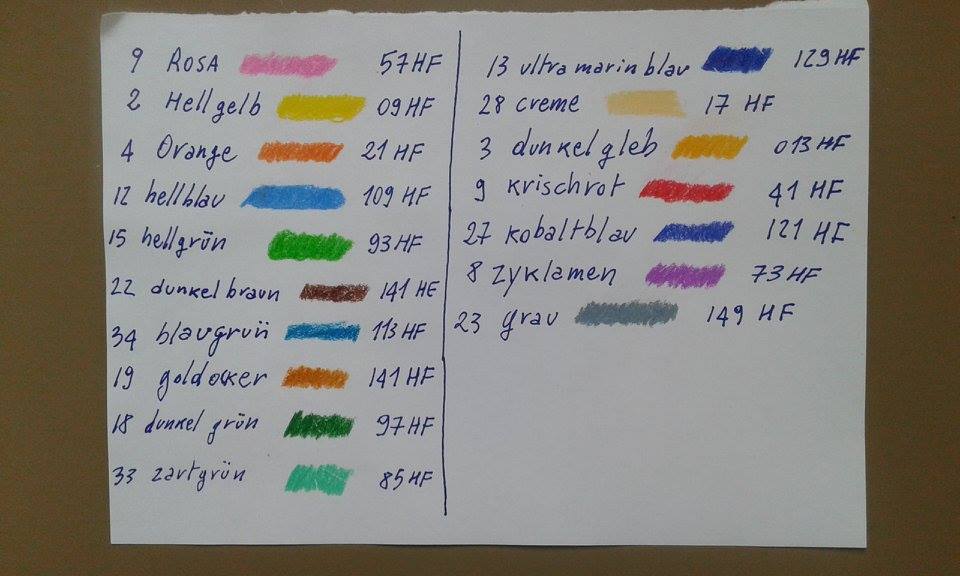 9 Rosa 57 HF
2 Hellgelb 09 HF
4 Orange 21 HF
12 hellblau 109 HF
15 hellgrün 93 HF
22 dunkelbraun 141 HE
34 blaugrün 113 HF
19 goldocker 141 HF
18 dunkel grün 97 HF
33 zartgrün 85 HF
13 ultramarinblau 129 HF
28 creme 17 HF
3 dunkelgleb 013 HF
9 krischrot 41 HF
27 kobaltblau 121 HF
8 zyklamen 73 HF
23 grau 149 HF